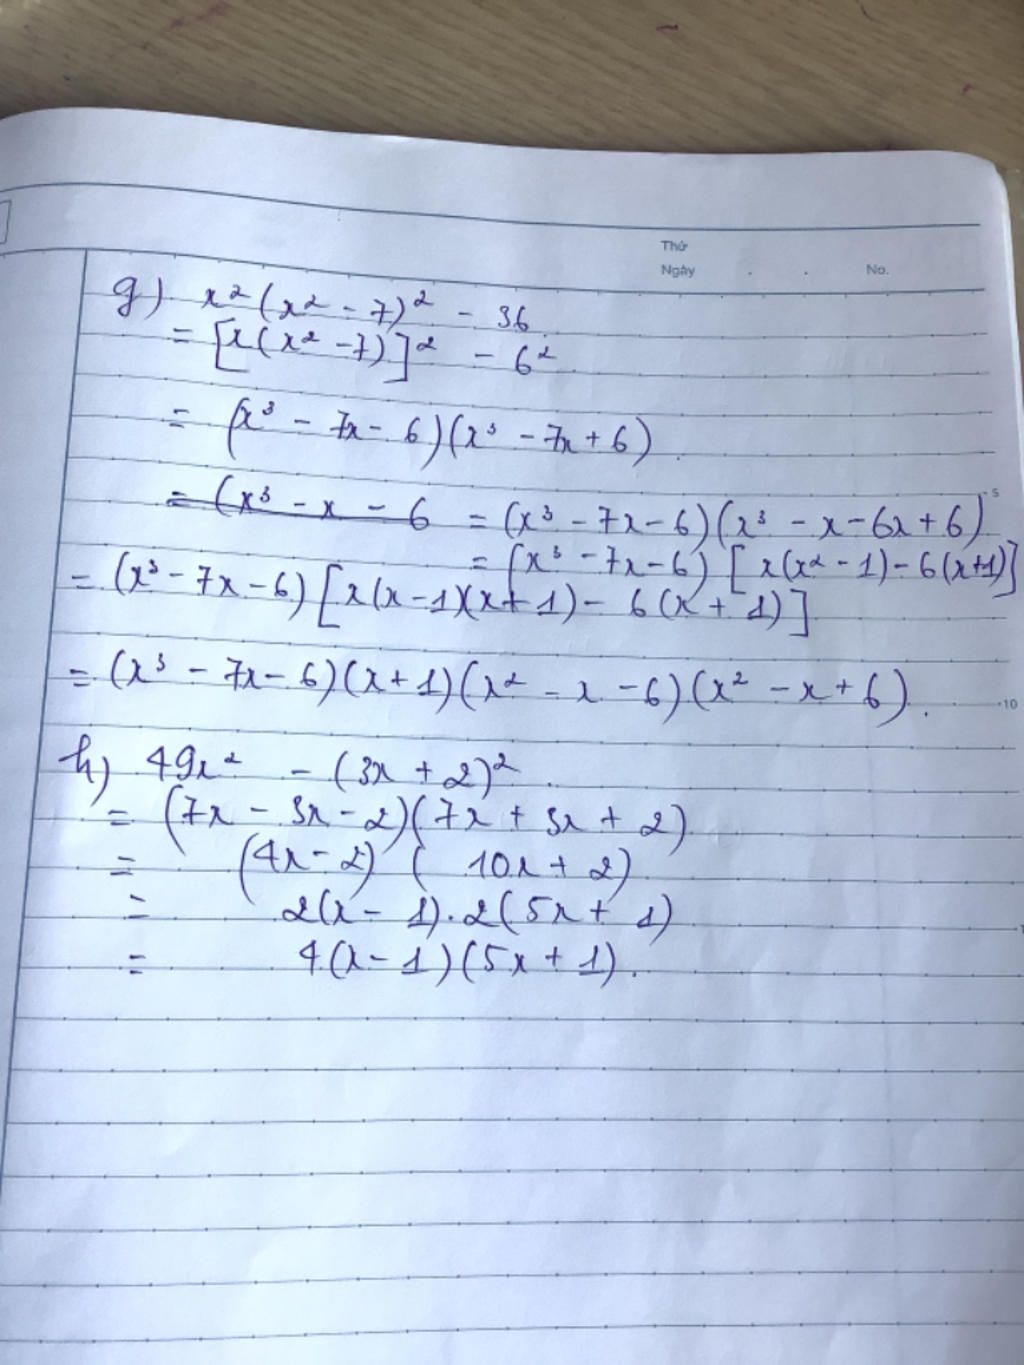 Thứ
Ngày . . No.
g) x²(x² - 7)² - 36
= [x(x² - 7)]² - 6²
= (x³ - 7x - 6)(x³ - 7x + 6)
= (x³ - x - 6 = (x³ - 7x - 6)(x³ - x - 6x + 6)
5
= (x³ - 7x - 6) [x(x² - 1) - 6(x+1)]
= (x³ - 7x - 6) [x(x - 1)(x + 1) - 6(x + 1)]
= (x³ - 7x - 6)(x + 1)(x² - x - 6)(x² - x + 6).
10
h) 49x² - (3x + 2)²
= (7x - 3x - 2)(7x + 3x + 2)
= (4x - 2) ( 10x + 2)
= 2(x - 1).2(5x + 1)
= 4(x - 1)(5x + 1).